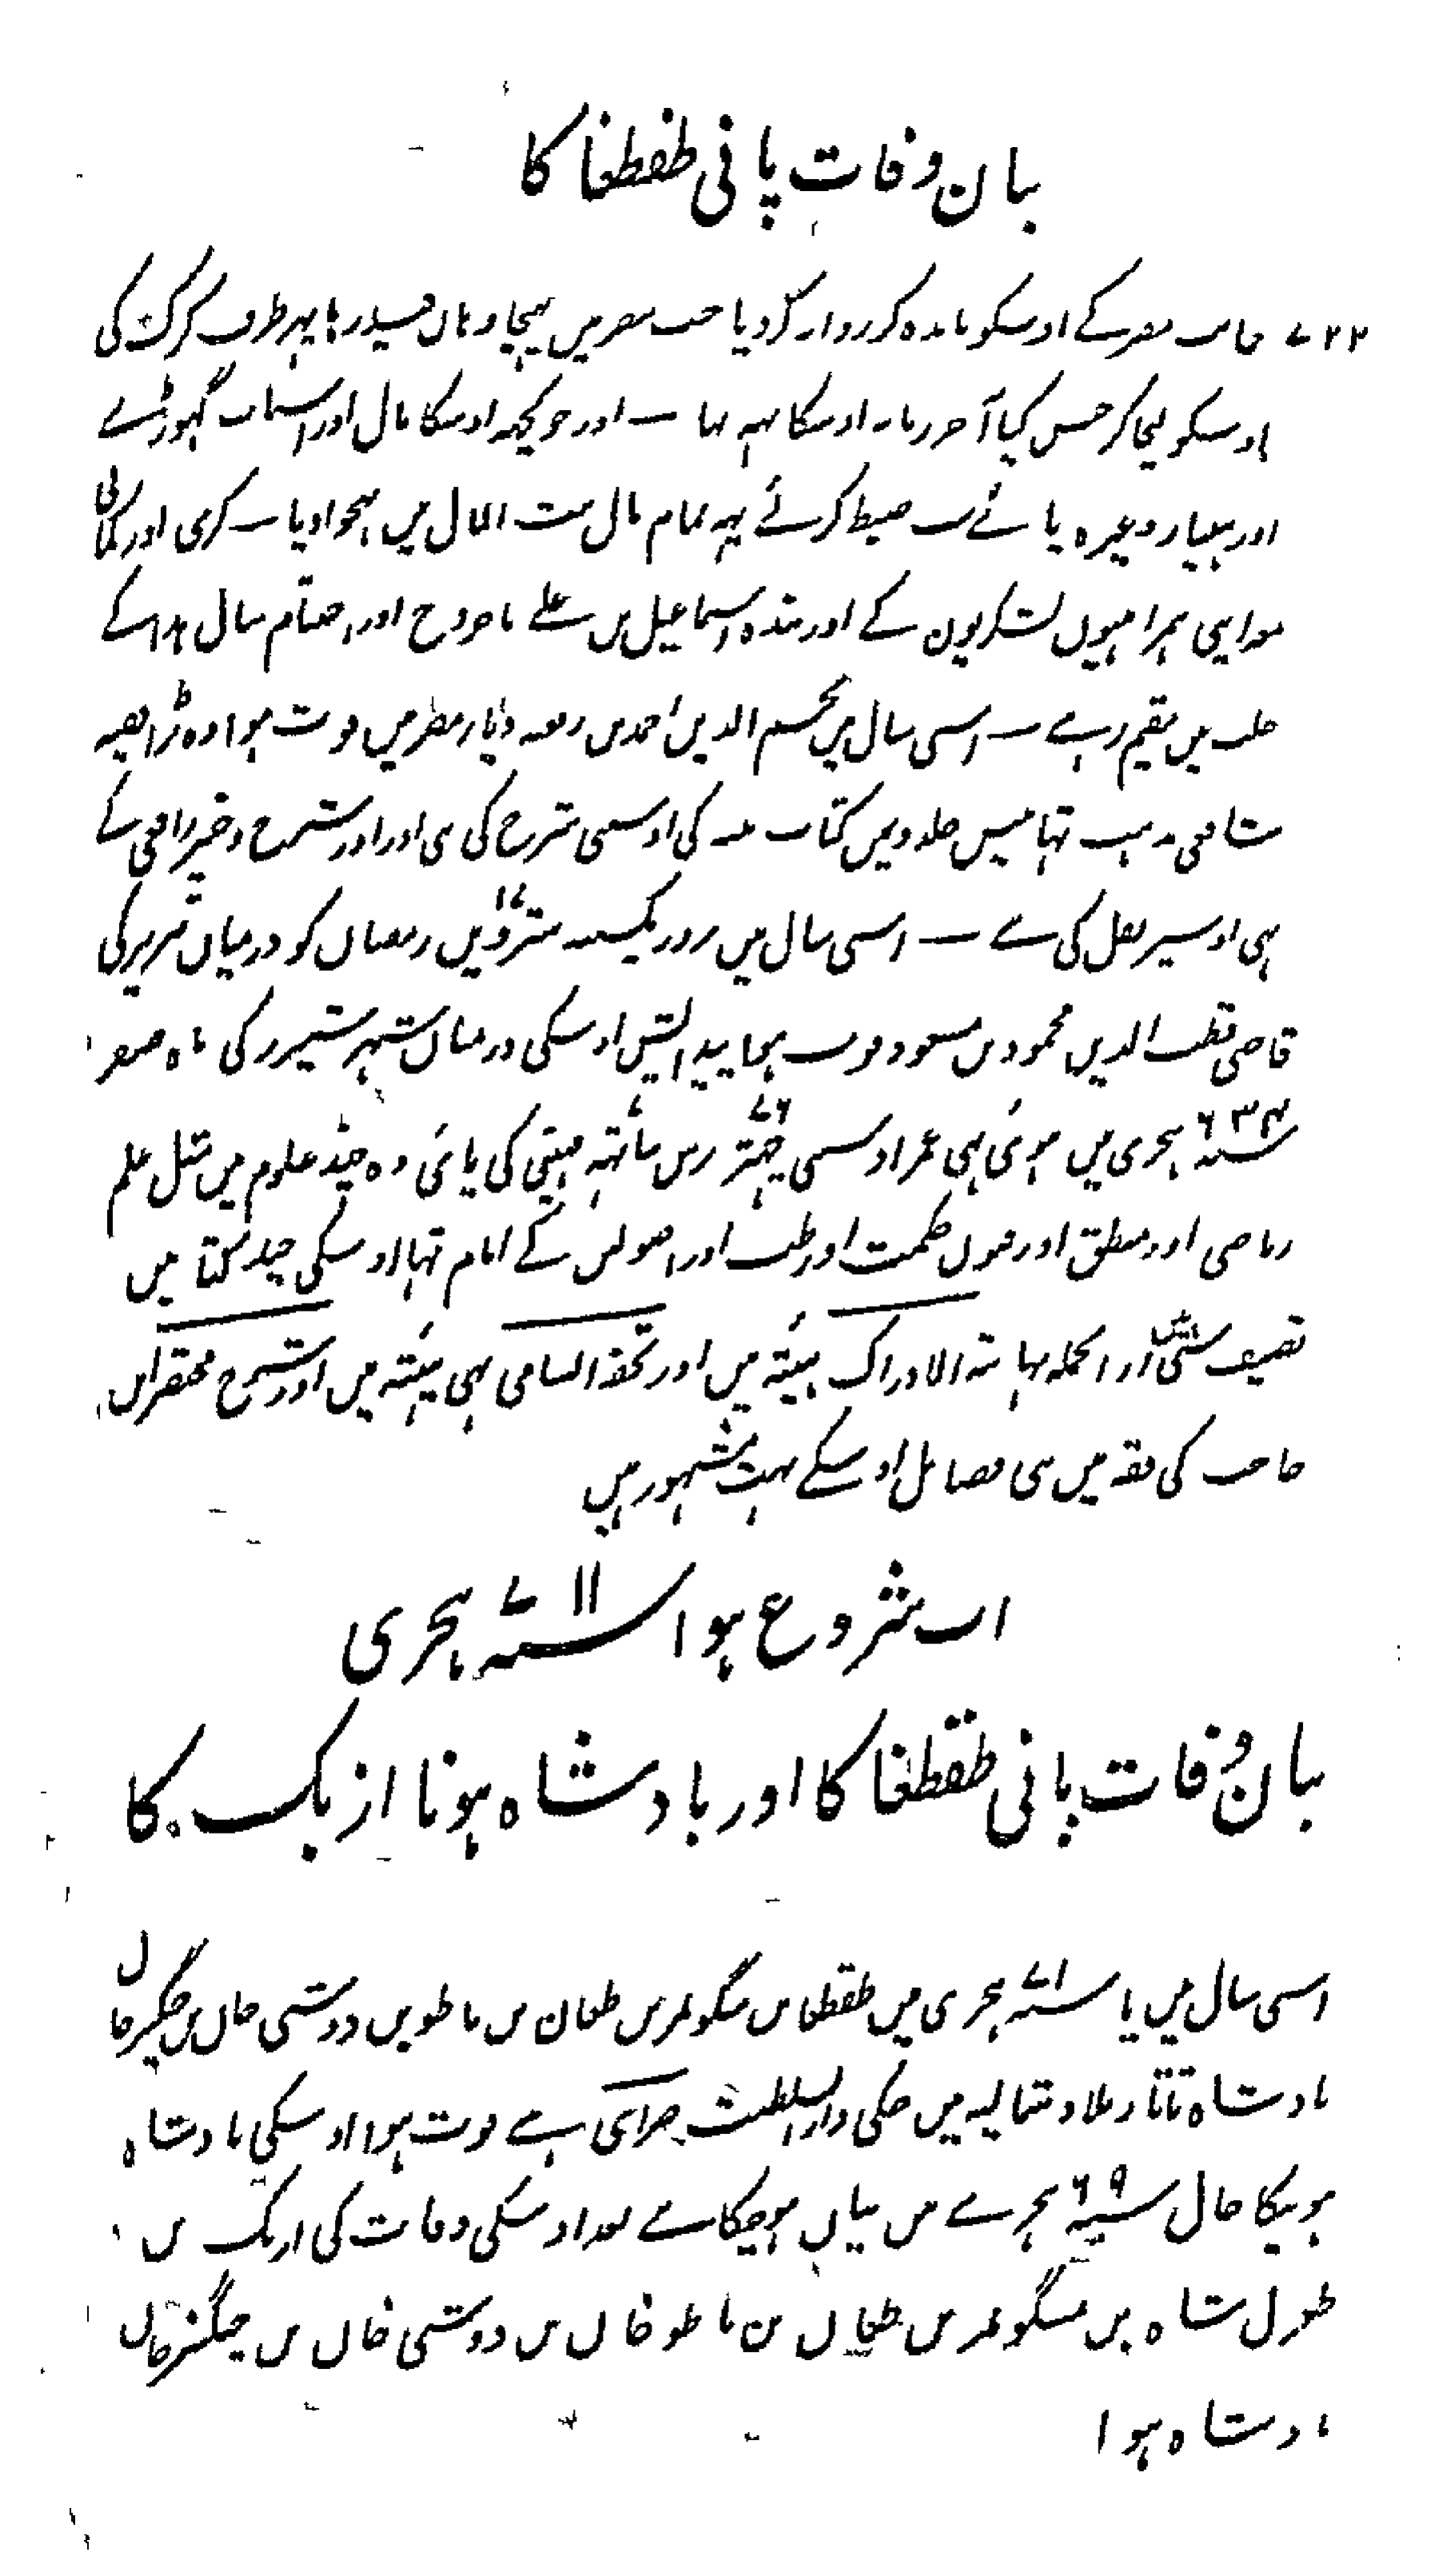 بیان وفات پانی طقطغا کا
۷۲۲ جانب مصر کے اوسکو باندہ کر روانہ کر دیا جب مصر میں پہنچا وہاں قید رہا پہر طرف کرک کی
اوسکو لیجا کر حبس کیا آخر زمانہ اوسکا یہہ تہا — اور جو کچہہ اوسکا مال اور اسباب گہوڑے
اور ہتیار وغیرہ پائے سب ضبط کرکے یہہ تمام مال بیت المال میں بہجوا دیا — کری اور کمالی
معہ اپنی ہمراہیوں لشکریوں کے اور بندہ اسماعیل بن علے باخروج اور اختتام سال کے
حلب میں مقیم رہے — اسی سال میں نجم الدین احمد بن رفعہ دیار مصر میں فوت ہوا وہ بڑا فقیہ
شافعی مذہب تہا بیس جلدوں میں کتاب کی اوسنی شرح کی ہی اور اور شرح وجیز رافعی کے
ہی اوسپر نقل کی ہے — اسی سال میں روز یکشنبہ سترویں ۱۷ رمضان کو درمیاں تبریز کی
قاضی قطب الدین محمود بن مسعود فوت ہوا پیدایش اوسکی درمیاں شہر شیراز کی ماہ صفر
سنہ ۶۳۴ ہجری میں ہوئی ہی عمر اوسنی چہتر ۷۶ برس سات مہینی کی پائی وہ چند علوم میں مثل علم
ریاضی اور منطق اور فنون حکمت اور طب اور اصولیں کے امام تہا اوسکی چند کتابیں
تصنیف سی ہیں از انجملہ نہایتہ الادراک ہیئتہ میں اور تحفہ السامی بہی ہیئتہ میں اور شرح مختصر ابن
حاجب کی فقہ میں ہی فضائل اوسکے بہت مشہور ہیں
اب شروع ہوا سنہ ۷۱۱ ہجری
بیان وفات پانی طقطغا کا اور بادشاہ ہونا ازبک کا
اسی سال میں یا سنہ ہجری میں طقطغا بن منگوتمر بن طغان بن باطو بن دوشی خاں بن چنگیز خاں
بادشاہ تاتار بلاد شمالیہ میں جسکی دار السلطنت صرای ہے فوت ہوا اوسکی بادشاہ
ہونیکا حال سنہ ہجرے میں بیاں ہوچکا ہے بعد اوسکی وفات کی ازبک بن
طغرل شاہ بن منگوتمر بن طغاں بن باطو خاں بن دوشی خاں بن چنگیز خاں
بادشاہ ہوا